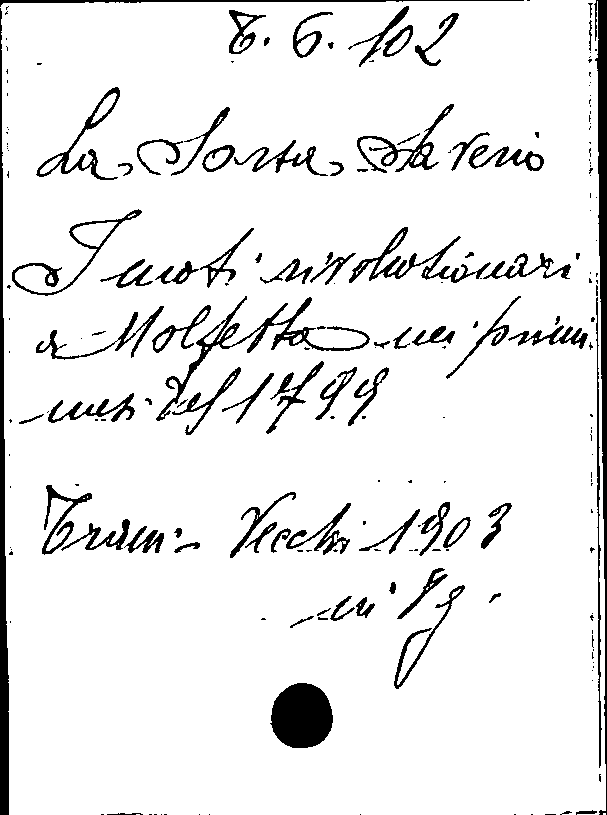 T. G. 102
La Sorsa Saverio
I moti rivoluzionari
a Molfetta nei primi
mesi del 1799
Trani - Vecchi 1903
in 8g.